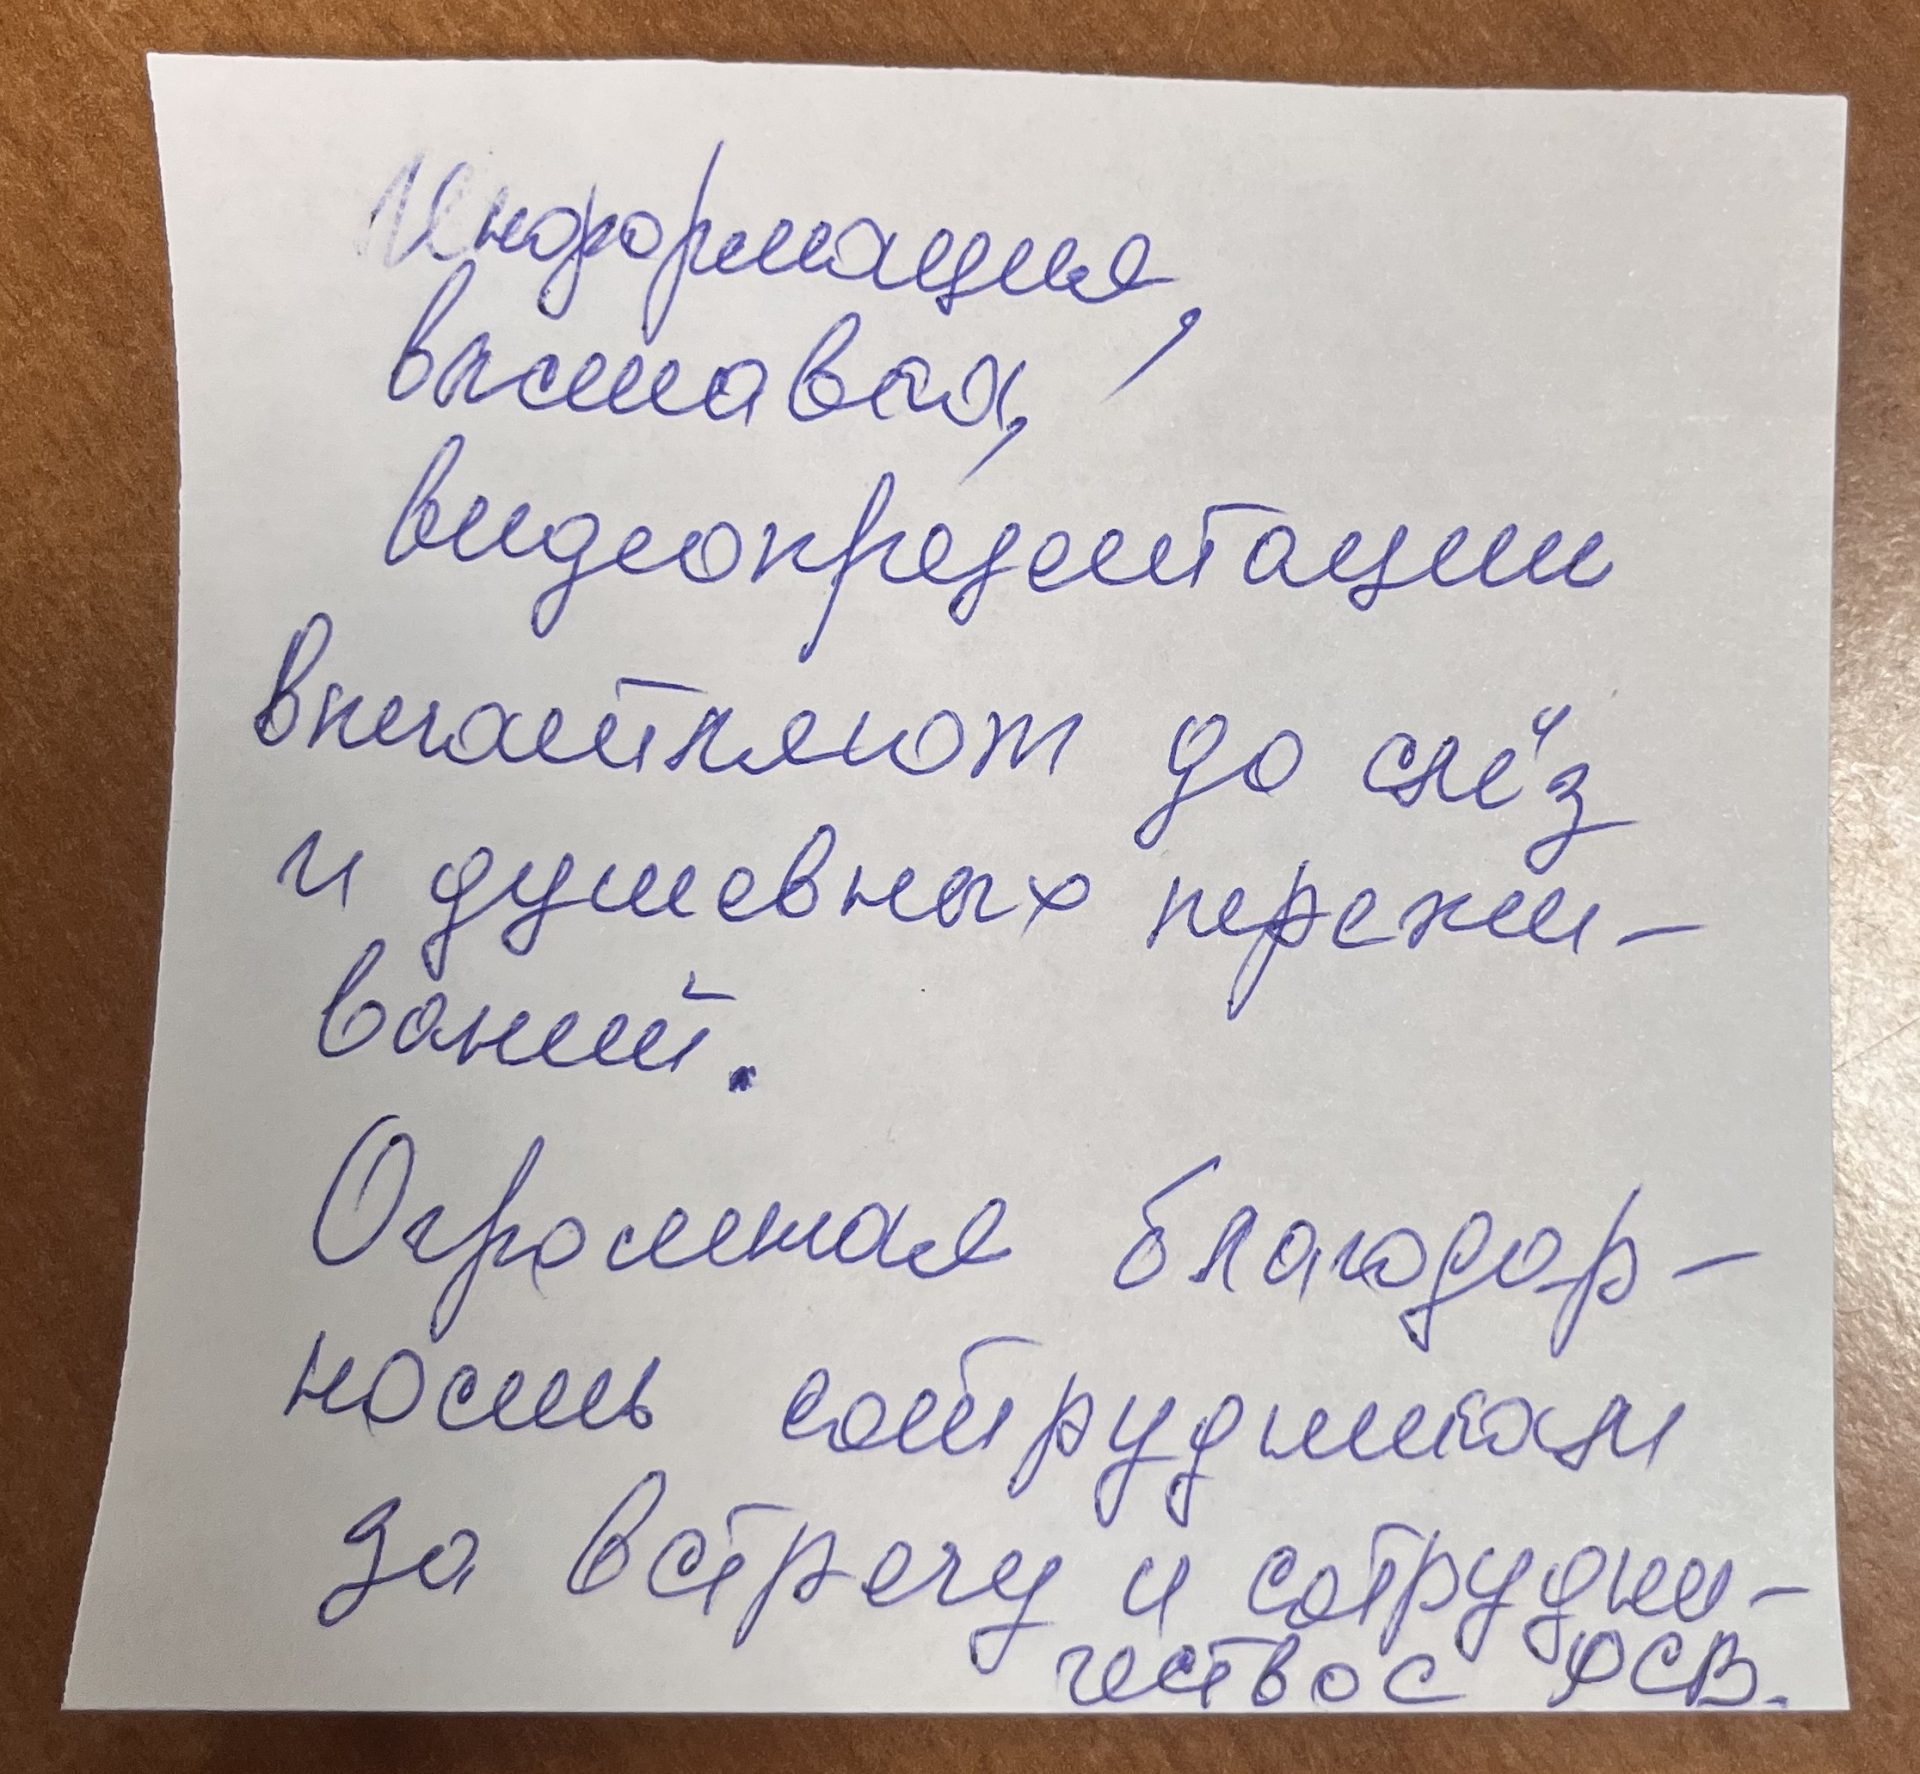 Информация,
выставка,
видеопрезентации
впечатляют до слёз
и душевных пережи-
ваний.
Огромная благодар-
ность сотрудникам
за встречу и сотрудни-
чество с ФСВ.